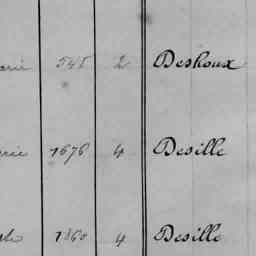 545 2 Deshoux
1676 4 Desille
1860 4 Desille